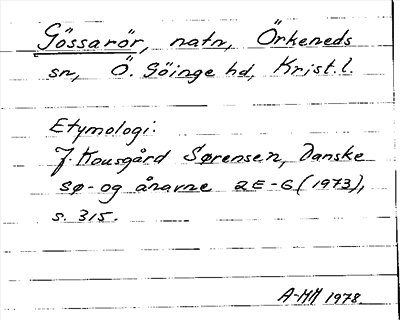 Gössarör, natn, Örkeneds
sn, Ö. Göinge hd, Krist. l.
Etymologi:
J. Kousgård Sørensen, Danske
sø- og ånavne 2 E-G (1973),
s. 315.
A-MH 1978